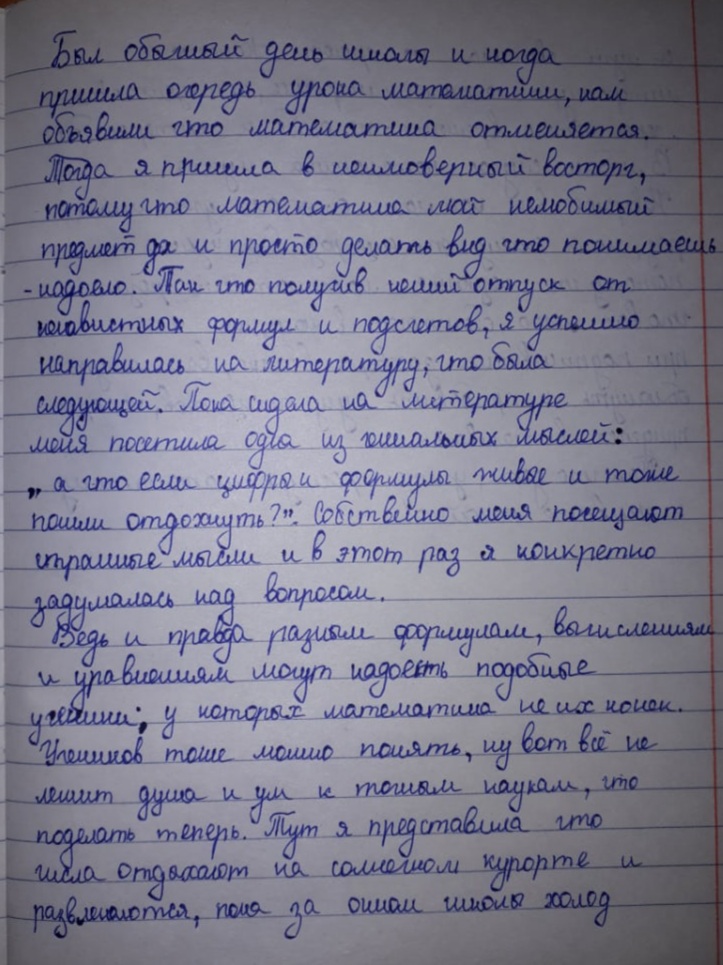 Был обычный день школы и когда
пришла очередь урока математики, нам
объявили что математика отменяется.
Тогда я пришла в неимоверный восторг,
потому что математика мой нелюбимый
предмет да и просто делать вид что понимаешь
- надоело. Так что получив некий отпуск от
ненавистных формул и подсчетов, я успешно
направилась на литературу, что была
следующей. Пока сидела на литературе
меня посетила одна из гениальных мыслей:
„а что если цифры и формулы живые и тоже
пошли отдохнуть?". Собственно меня посещают
странные мысли и в этот раз я конкретно
задумалась над вопросом.
Ведь и правда разным формулам, вычислениям
и уравнениям могут надоесть подобные
ученики; у которых математика не их конек.
Учеников тоже можно понять, ну вот всё не
лежит душа и ум к точным наукам, что
поделать теперь. Тут я представила что
числа отдыхают на солнечном курорте и
развлекаются, пока за окном школы холод